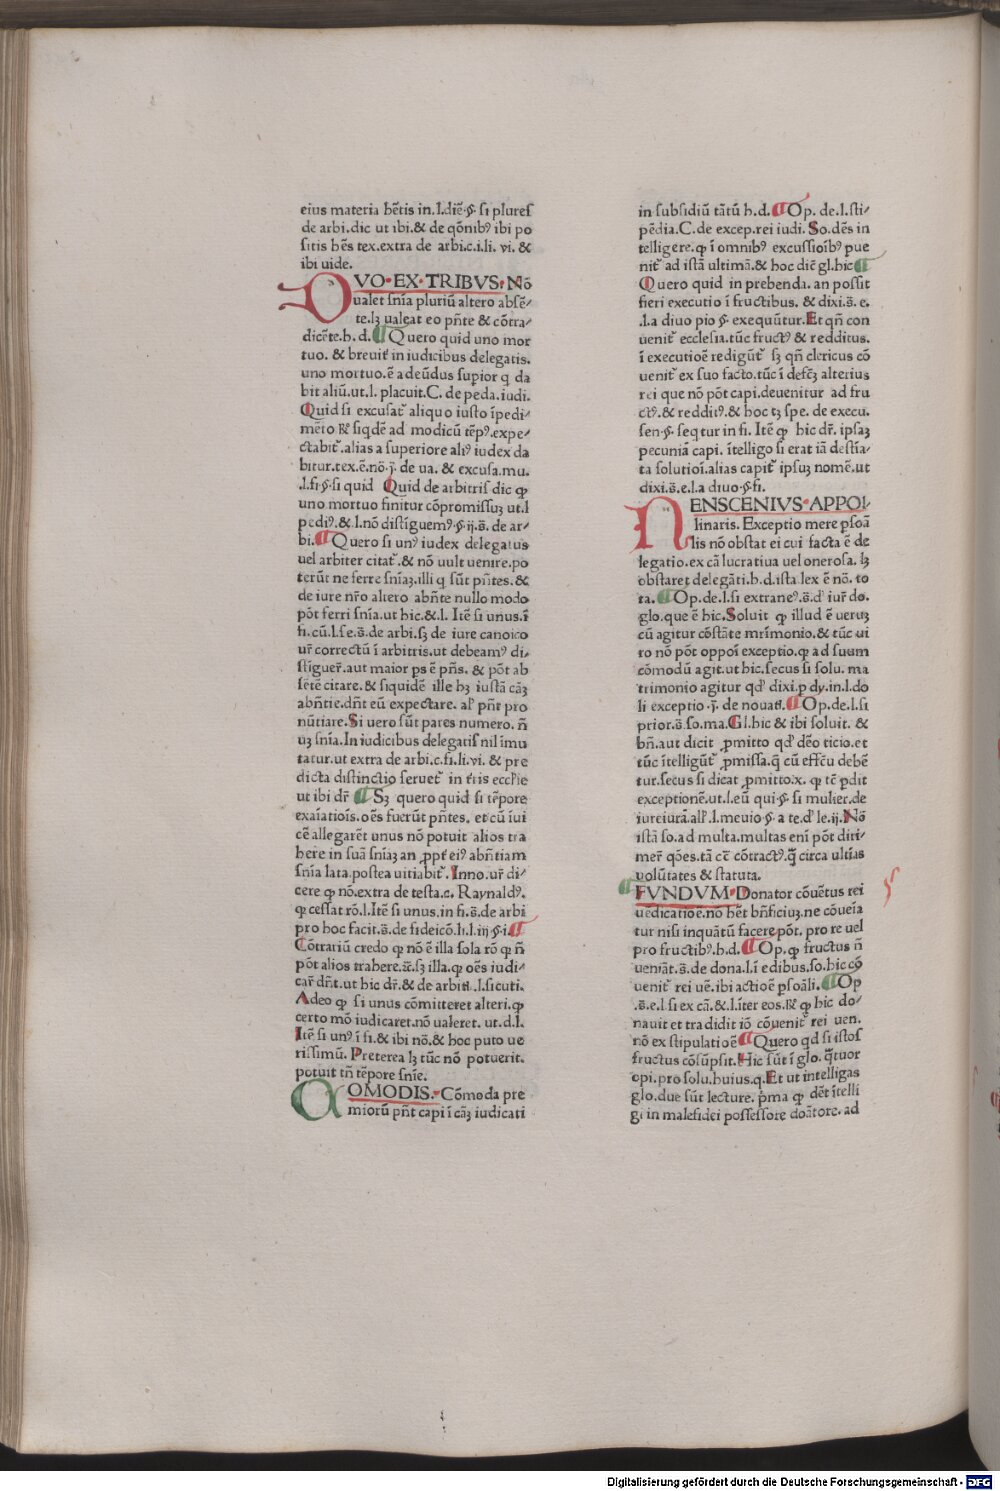 eius materia hẽtis in.l.diẽ.§. si plures
de arbi.dic ut ibi.& de qõnibꝰ ibi po
sitis hẽs tex.extra de arbi.c.i.li. vi. &
ibi uide.
DVO·EX·TRIBVS· Nõ
ualet sñia pluriũ altero absẽ/
te.lꝫ ualeat eo pñte & cõtra/
dicẽte.h.d. Quero quid uno mor
tuo. & breuit̃ in iudicibus delegatis.
uno mortuo.ẽ adeũdus supior q da
bit aliũ.ut.l. placuit.C. de peda.iudi.
Quid si excusat̃ aliquo iusto ĩpedi/
mẽto siqdẽ ad modicũ tẽpꝰ.expe/
ctabit̃.alias a superiore aliꝰ iudex da
bitur.tex.ẽ.nõ.j. de ua. & excusa.mu.
.l.fi.§.si quid Quid de arbitris dic ꝙ
uno mortuo finitur cõpromissuꝫ ut.l
pediꝰ.&.l.nõ distinguemꝰ.§.ij.s̃. de ar/
bi. Quero si unꝰ iudex delegatus
uel arbiter citat̃. & nõ uult uenire.po
terũt ne ferre sñiaꝫ.illi q sũt pñtes.&
de iure nr̃o altero abñte nullo modo
põt ferri sñia.ut hic.&.l. Itẽ si unus.ĩ
fi.cũ.l.se.s̃.de arbi.sꝫ de iure canoico
ur̃ correctũ ĩ arbitris.ut debeamꝰ di/
stiguer̃.aut maior ps ẽ pñs. & põt ab
sẽtẽ citare. & siquidẽ ille hꝫ iustã cãꝫ
abñtie.dñt eũ expectare. al' pñt pro
nũtiare.Si uero sũt pares numero. ñ
uꝫ sñia.In iudicibus delegatis nil ĩmu
tatur.ut extra de arbi.c.fi.li.vi. & pre
dicta distinctio seruet̃ in tris ecclie
ut ibi dr̃ Sꝫ quero quid si tẽpore
exaĩatiois.oẽs fuerũt pñtes. et cũ ĩui
cẽ allegarẽt unus nõ potuit alios tra
here in suã sñiaꝫ an ꝓpt̃ eiꝰ abñtiam
sñia lata postea uitiabit̃. Inno.ur̃ di/
cere ꝙ nõ.extra de testa.c. Raynaldꝰ.
ꝙ cessat rõ.l.Itẽ si unus.in fi.s̃.de arbi
pro hoc facit.s̃.de fideicõ.h.l.iij §.i.
Cõtrariũ credo ꝙ nõ ẽ illa sola rõ ꝙ ñ
põt alios trahere.sꝫ illa.ꝙ oẽs iudi/
car̃ dñt.ut hic dr̃.& de arbitri.l.sicuti.
Adeo ꝙ si unus cõmitteret alteri.ꝙ
certo mõ iudicaret.nõ ualeret. ut.d.l.
Itẽ si unꝰ ĩ fi.& ibi nõ.& hoc puto ue
rissimũ. Preterea lꝫ tũc nõ potuerit.
potuit tñ tẽpore sñie.
COMODIS. Cõmoda pre
miorũ pñt capi ĩ cãꝫ iudicati
in subsidiũ tãtũ h.d. Op. de.l.sti/
pẽdia.C.de excep.rei iudi. So.dẽs in
telligere.ꝙ ĩ omnibꝰ excussioĩbꝰ pue
nit̃ ad istã ultimã.& hoc diẽ gl.hic
Quero quid in prebenda. an possit
fieri executio ĩ fructibus. & dixi.s̃. e.
.l.a diuo pio §. exequũtur.Et qñ con
uenit̃ ecclesia.tũc fructꝰ & redditus.
ĩ executioẽ redigũt̃ sꝫ qñ clericus cõ
uenit̃ ex suo facto.tũc ĩ defcꝫ alterius
rei que nõ põt capi.deuenitur ad fru
ctꝰ.& redditꝰ.& hoc tꝫ spe. de execu.
sen.§. seqtur in fi. Itẽ ꝙ hic dr̃. ipsaꝫ
pecuniã capi. ĩtelligo si erat iã destĩa/
ta solutioĩ.alias capit̃ ipsuꝫ nomẽ.ut
dixi.s̃.e.l.a diuo.§.fi.
NENSCENIVS·APPOL
linaris. Exceptio mere psoã
lis nõ obstat ei cui facta ẽ de
legatio.ex cã lucratiua uel onerosa. lꝫ
obstaret delegãti.h.d.ista lex ẽ nõ. to
ta. Op.de.l.si extraneꝰ.s̃.d' iur̃ do.
glo.que ẽ hic.Soluit ꝙ illud ẽ ueruꝫ
cũ agitur cõstãte mr̃imonio.& tũc ui
ro nõ põt oppoĩ exceptio.ꝙ ad suum
cõmodũ agit.ut hic.secus si solu. ma
trimonio agitur qd' dixi.p dy.in.l.do
li exceptio.j. de nouati. Op.de.l.si
prior.s̃.so.ma.Gl.hic & ibi soluit. &
bñ.aut dicit ꝓmitto qd' dẽo ticio.et
tũc ĩtelligũt̃ ꝓmissa.q̃ cũ effcũ debẽ
tur.secus si dicat ꝓmitto.x. ꝙ tẽ pdit
exceptionẽ.ut.l.eũ qui §. si mulier.de
iureiurã.al'.l.meuio §. a te.d' le.ij.Nõ
istã so.ad multa.multas enĩ põt diri/
mer̃ qões.tã cẽ cõtractꝰ.q̃ circa ultĩas
uolũtates & statuta.
FVNDVM·Donator cõuẽtus rei
uẽdicatioẽ.nõ hẽt bñficiuꝫ.ne cõueĩa
tur nisi inquãtũ facere põt. pro re uel
pro fructibꝰ.h.d. Op.ꝙ fructus ñ
ueniãt.s̃.de dona.l.i edibus.so.hic cõ
uenit̃ rei uẽ.ibi actioẽ psoãli. Op
.s̃.e.l.si ex cã.&.l.iter eos. ꝙ hic do/
nauit et tradidit iõ cõuenit̃ rei uen.
nõ ex stipulatioẽ Quero qd si istos
fructus cõsũpsit.Hic sũt ĩ glo. q̃tuor
opi.pro solu.huius.q.Et ut intelligas
glo.due sũt lecture. p̃ma ꝙ dẽt ĩtelli
gi in malefidei possessore doãtore. ad
Digitalisierung gefördert durch die Deutsche Forschungsgemeinschaft - DFG